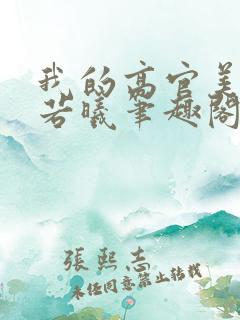 我的高官美
若曦笔趣阁
張熙志
未经同意禁止转载